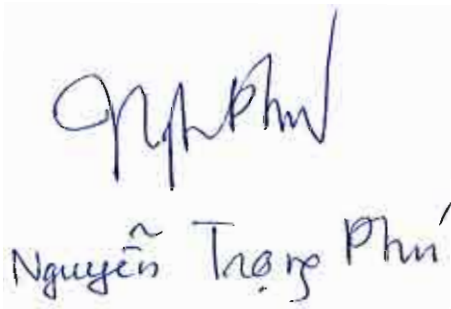 Nguyễn Trọng Phú